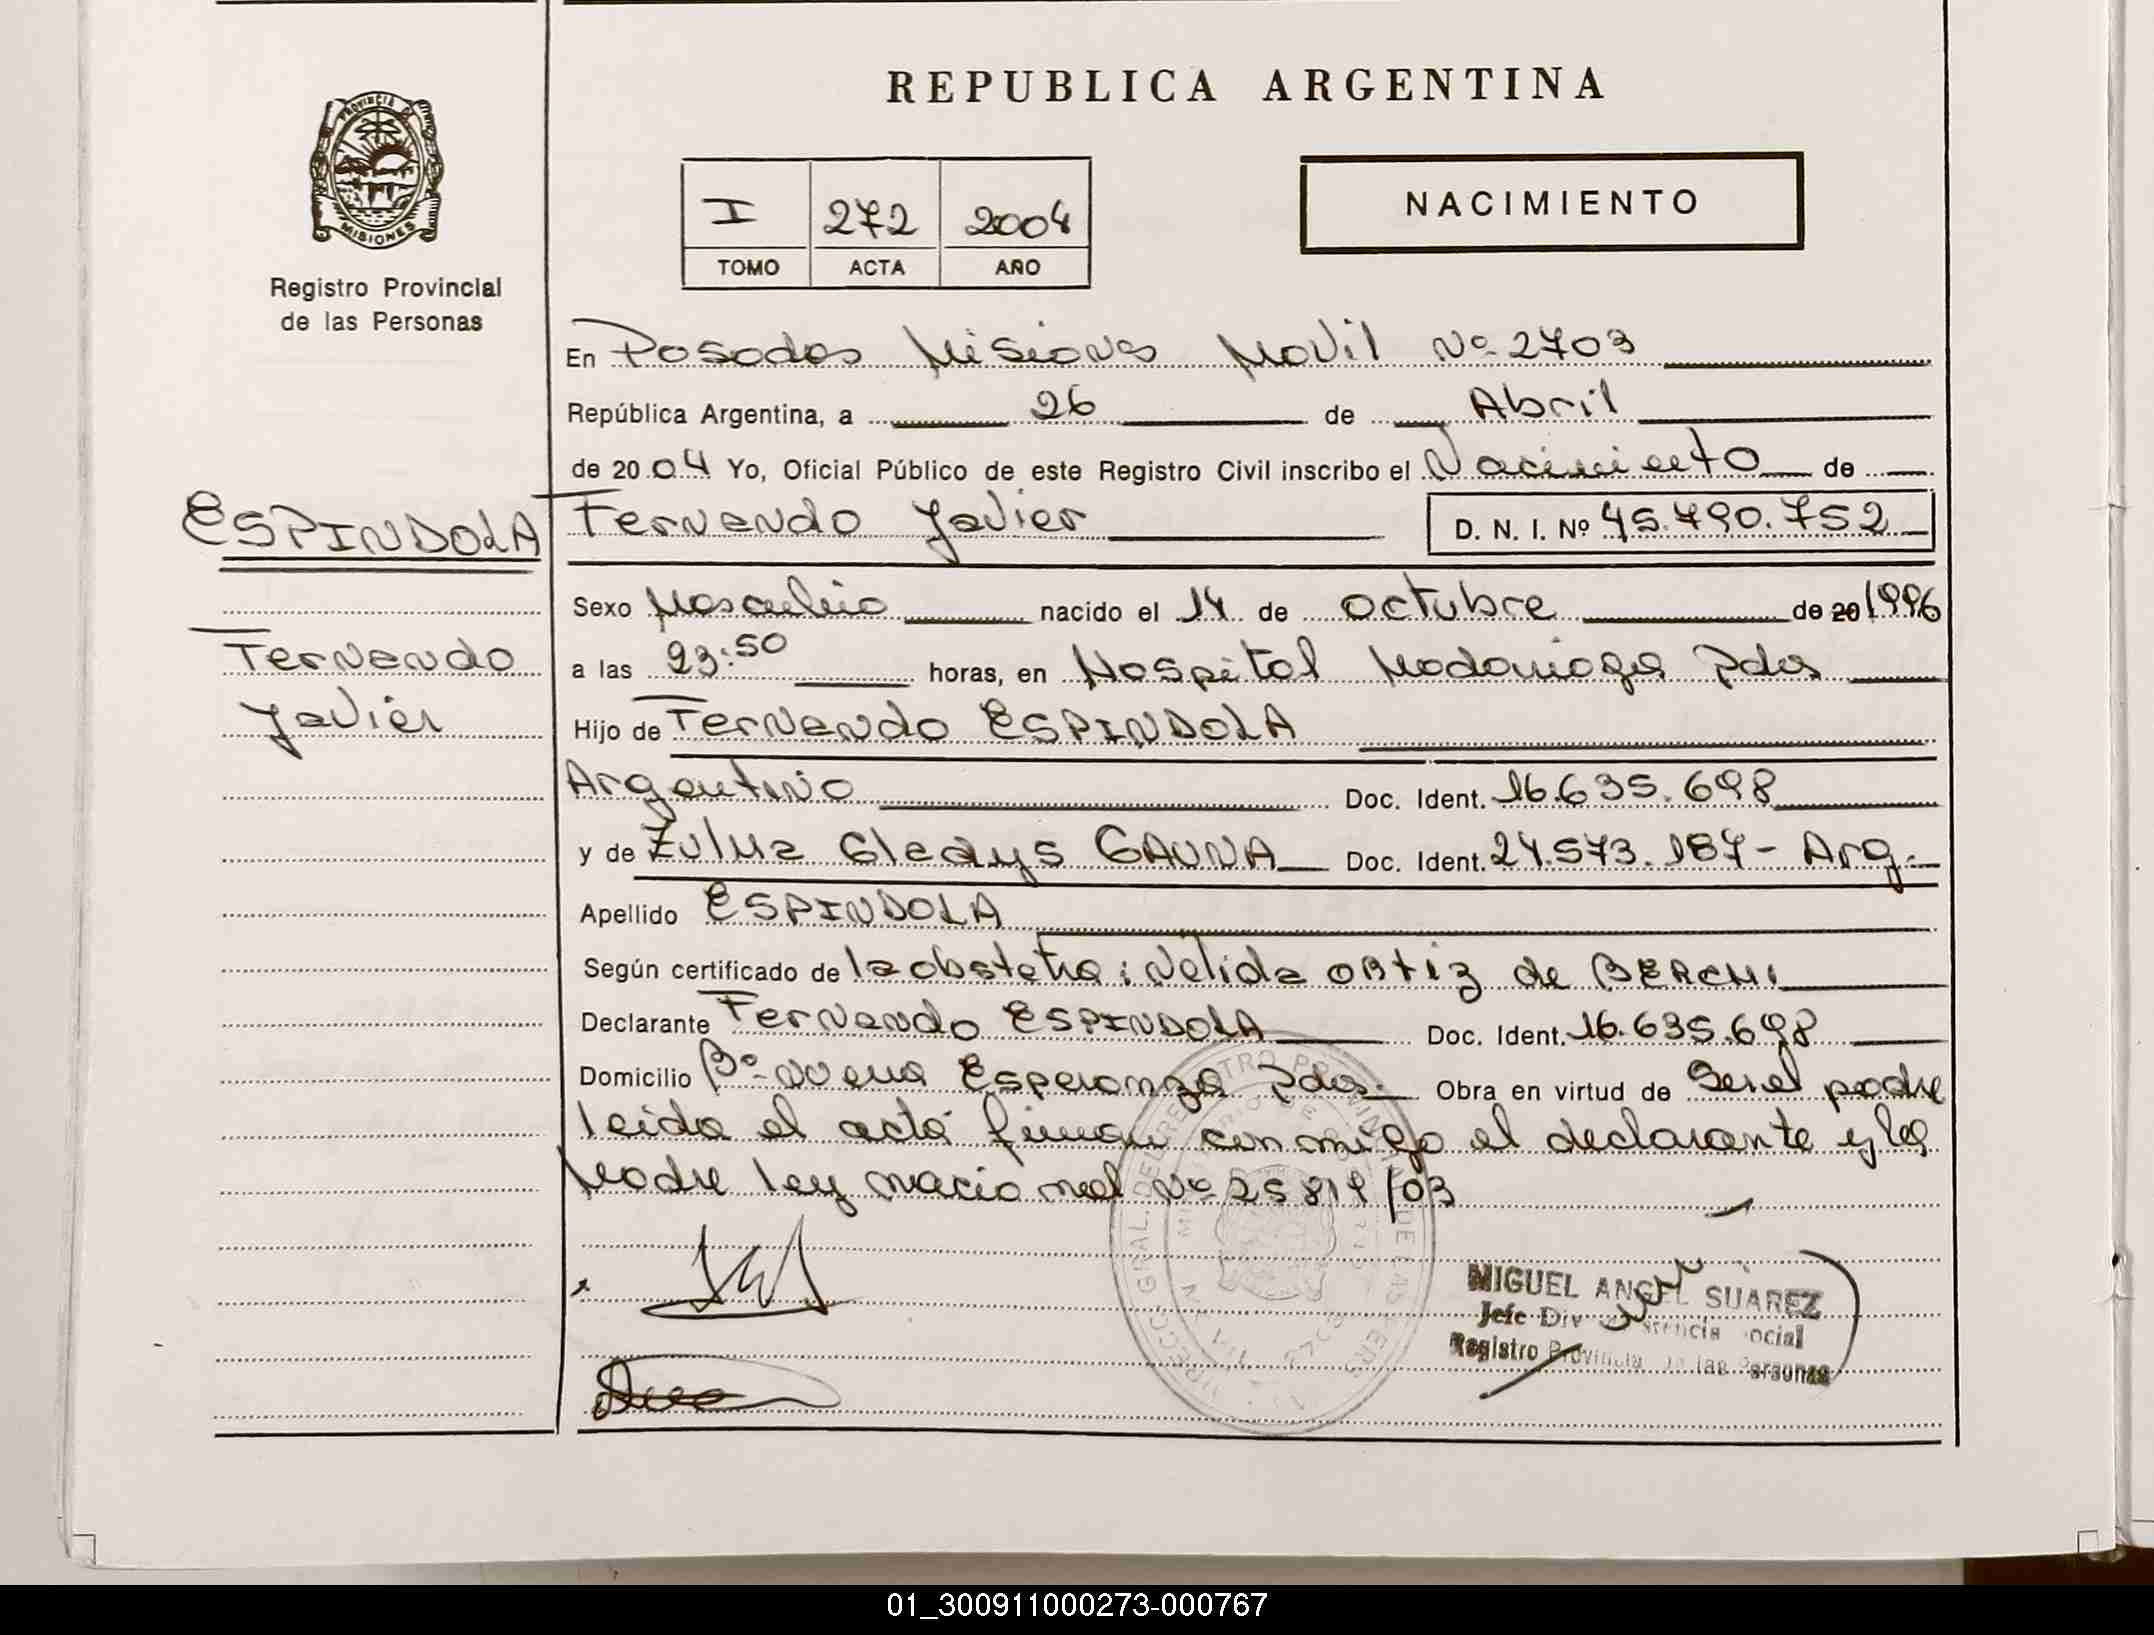 REPUBLICA ARGENTINA
PROVINCIA DE
MISIONES
Registro Provincial
de las Personas
I 272 2004
TOMO ACTA AÑO
NACIMIENTO
En Posadas Misiones Movil Nº 2703
República Argentina, a 26 de Abril
de 2004 Yo, Oficial Público de este Registro Civil inscribo el Nacimiento de
ESPINDOLA
Fernando Javier D. N. I. Nº 45.790.752
Sexo Masculino nacido el 14 de octubre de 20 1996
Fernando
Javier
a las 23:50 horas, en Hospital Madariaga Pdas
Hijo de Fernando ESPINDOLA
Argentino Doc. Ident. 16.635.698
y de Zulma Gladys GAUNA Doc. Ident. 24.573.187 - Arg.
Apellido ESPINDOLA
Según certificado de la obstetra: Nelida ORTIZ de BERCHI
Declarante Fernando ESPINDOLA Doc. Ident. 16.635.698
Domicilio Bº Nueva Esperanza Pdas. Obra en virtud de Ser el padre
leida el acta firman conmigo el declarante y la
Madre ley nacional Nº 25819/03
MIGUEL ANGEL SUAREZ
Jefe Div Social
Registro Provincial de las Personas
01_300911000273-000767